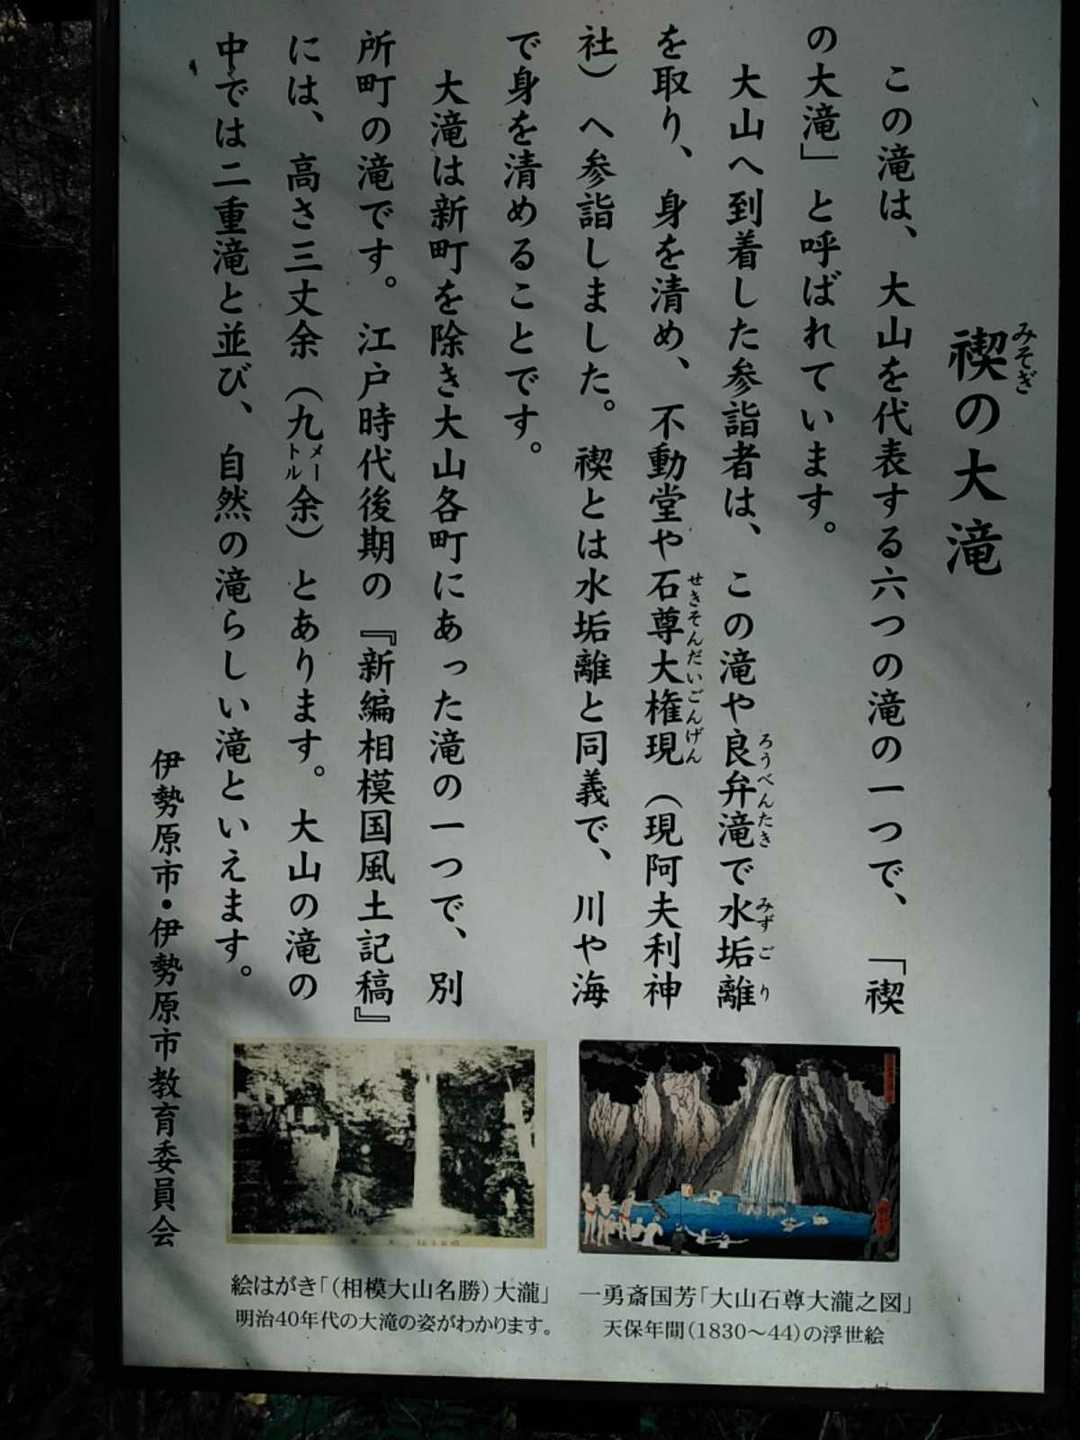 禊の大滝
みそぎ
この滝は、大山を代表する六つの滝の一つで、「禊
の大滝」と呼ばれています。
大山へ到着した参詣者は、この滝や良弁滝で水垢離
ろうべんたき
みずごり
を取り、身を清め、不動堂や石尊大権現（現阿夫利神
せきそんだいごんげん
社）へ参詣しました。禊とは水垢離と同義で、川や海
で身を清めることです。
大滝は新町を除き大山各町にあった滝の一つで、別
所町の滝です。江戸時代後期の『新編相模国風土記稿』
には、高さ三丈余（九メートル余）とあります。大山の滝の
中では二重滝と並び、自然の滝らしい滝といえます。
伊勢原市・伊勢原市教育委員会
一勇斎国芳「大山石尊大瀧之図」
天保年間（1830〜44）の浮世絵
絵はがき「（相模大山名勝）大瀧」
明治40年代の大滝の姿がわかります。